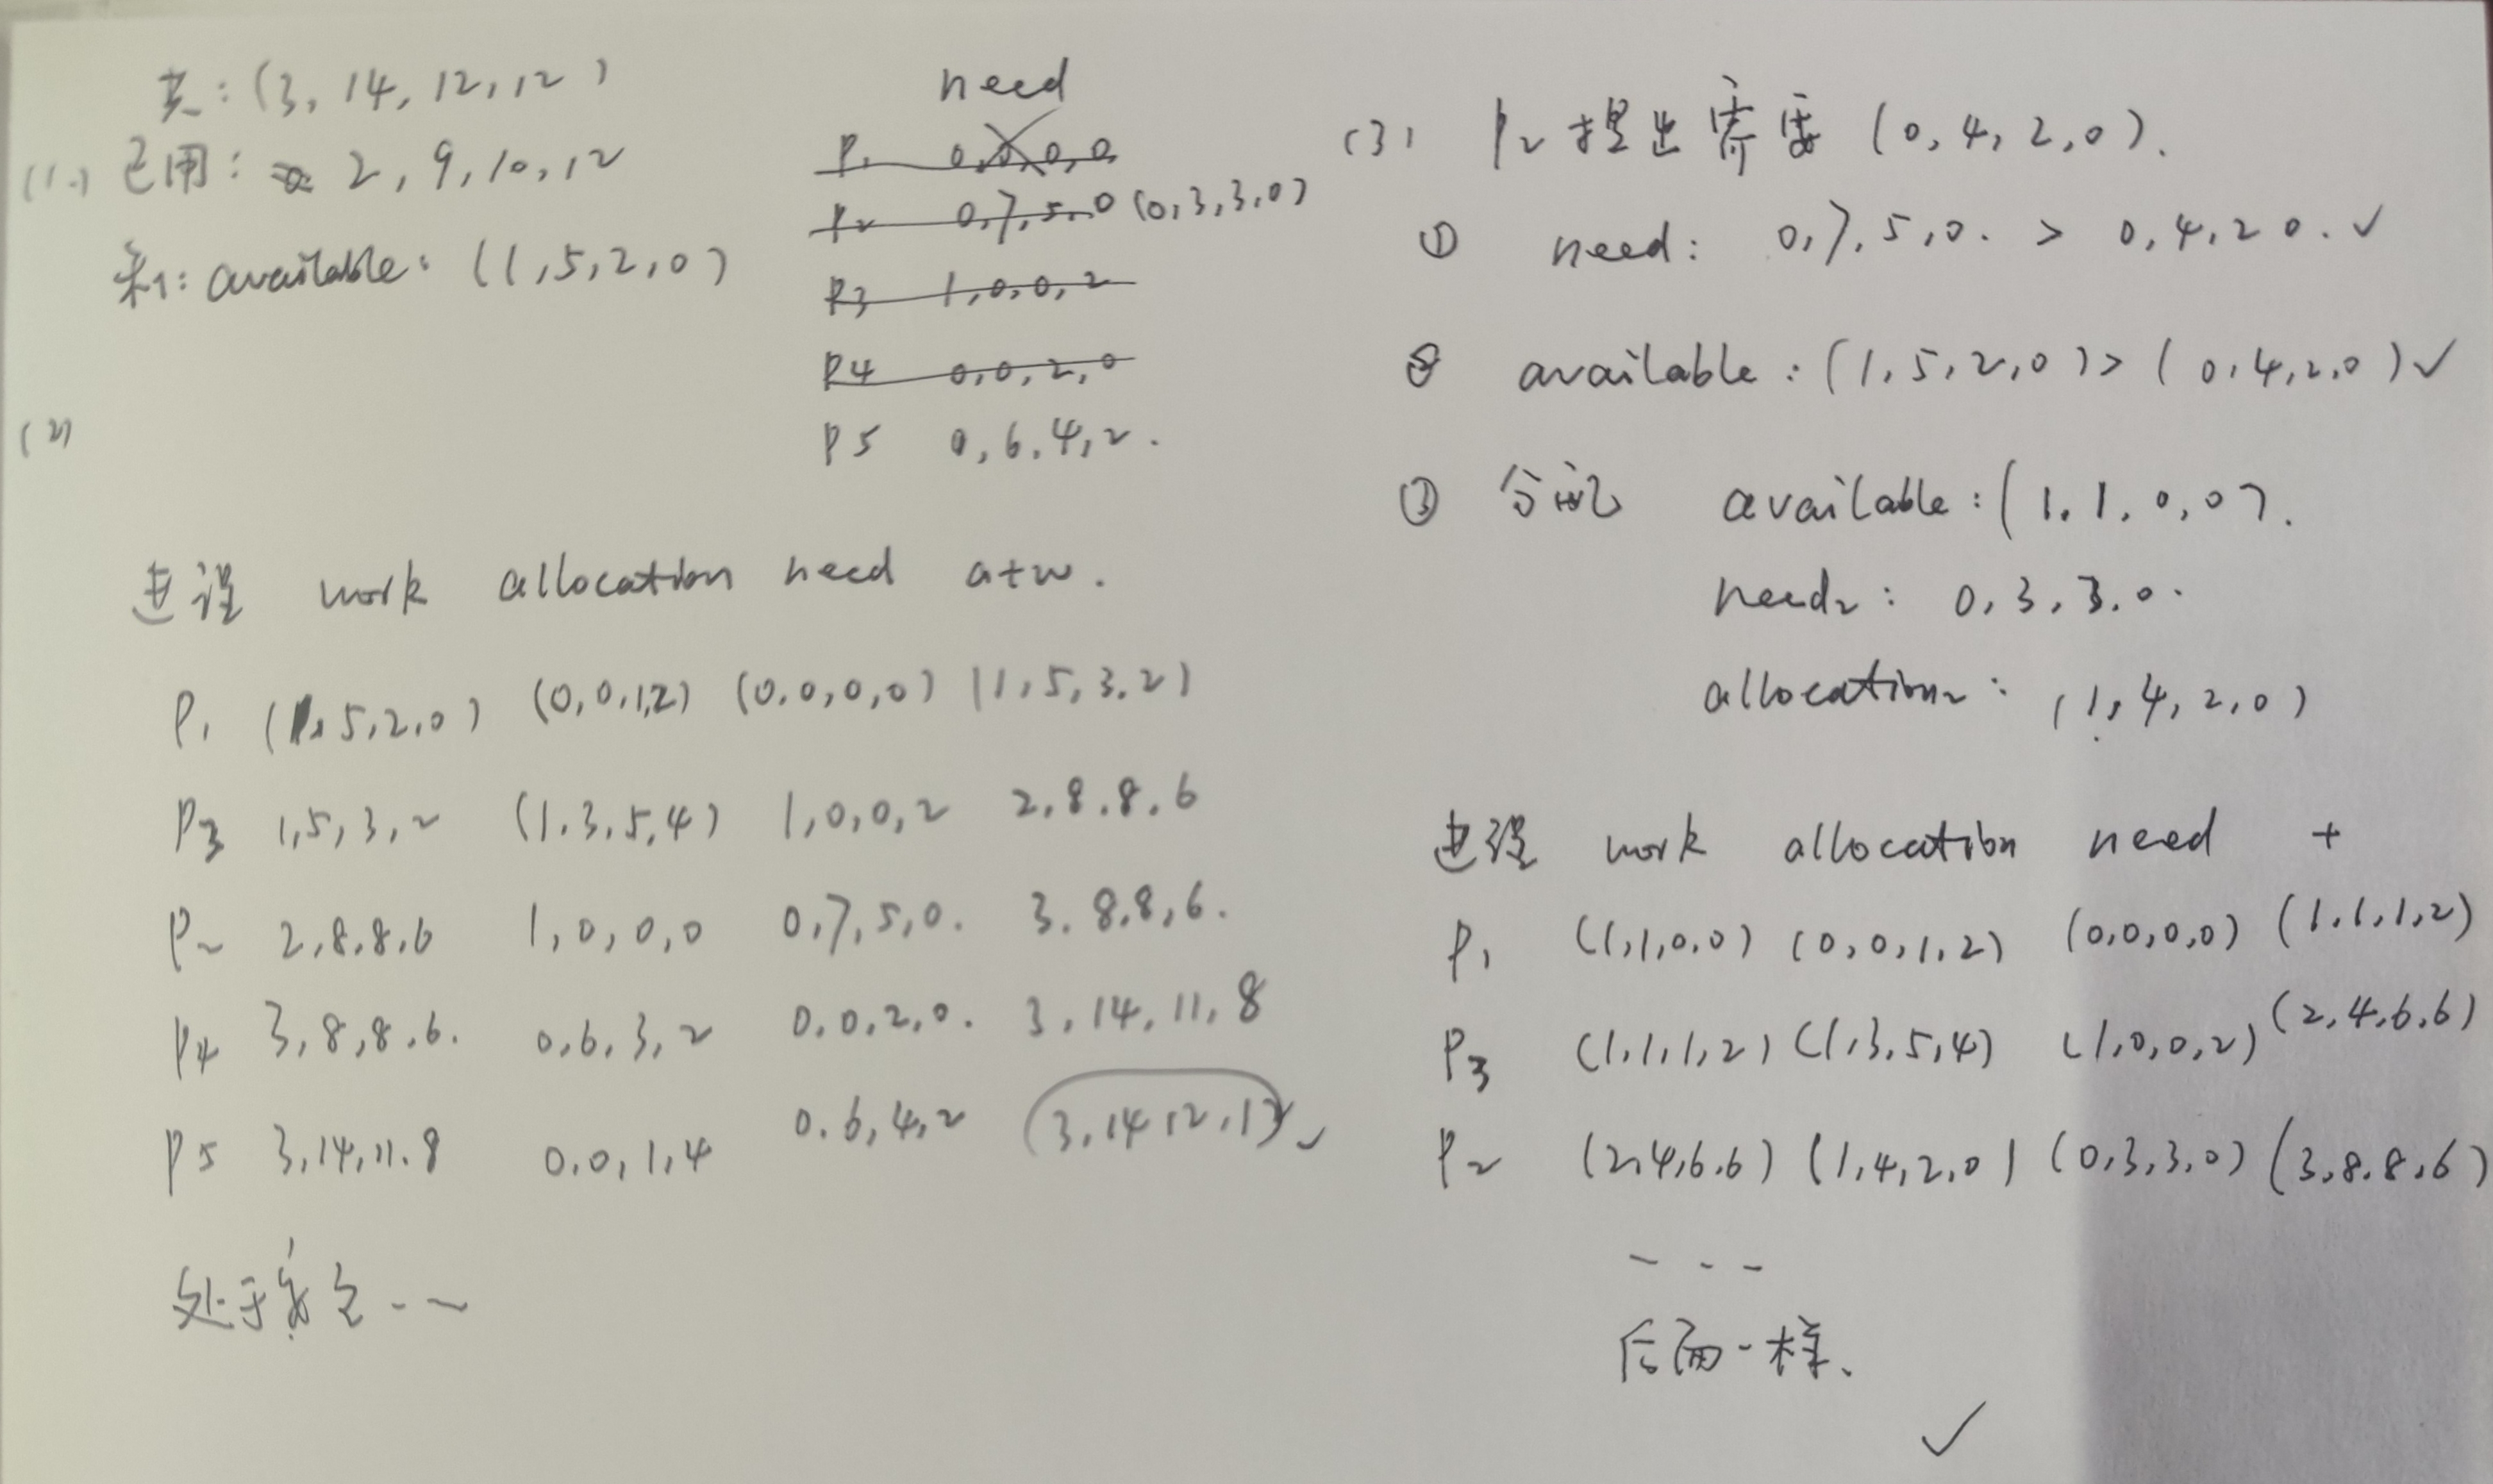 共:(3, 14, 12, 12)
(1) 已用: 2, 9, 10, 12
剩: available: (1, 5, 2, 0)
need
P1 0, 0, 0, 0
P2 0, 7, 5, 0 (0, 3, 3, 0)
P3 1, 0, 0, 2
P4 0, 0, 2, 0
P5 0, 6, 4, 2.
(2)
进程 work allocation need a+w.
P1 (1, 5, 2, 0) (0, 0, 1, 2) (0, 0, 0, 0) (1, 5, 3, 2)
P3 1, 5, 3, 2 (1, 3, 5, 4) 1, 0, 0, 2 2, 8, 8, 6
P2 2, 8, 8, 6 1, 0, 0, 0 0, 7, 5, 0. 3. 8, 8, 6.
P4 3, 8, 8, 6. 0, 6, 3, 2 0, 0, 2, 0. 3, 14, 11, 8
P5 3, 14, 11, 8 0, 0, 1, 4 0, 6, 4, 2 3, 14, 12, 12 ✓
处于安全
(3) P2提出需要 (0, 4, 2, 0).
① need: 0, 7, 5, 0. > 0, 4, 2 0. ✓
② available: (1, 5, 2, 0) > (0, 4, 2, 0) ✓
③ 分配 available: (1, 1, 0, 0).
need2: 0, 3, 3, 0.
allocation2: (1, 4, 2, 0)
进程 work allocation need +
P1 (1, 1, 0, 0) (0, 0, 1, 2) (0, 0, 0, 0) (1, 1, 1, 2)
P3 (1, 1, 1, 2) (1, 3, 5, 4) (1, 0, 0, 2) (2, 4, 6, 6)
P2 (2, 4, 6, 6) (1, 4, 2, 0) (0, 3, 3, 0) (3, 8, 8, 6)
- - -
后面一样、
✓